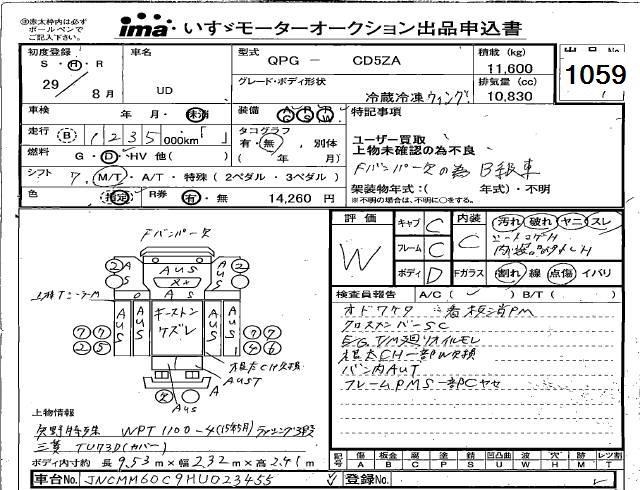 ※赤太枠内は必ず
ボールペンで
ご記入下さい。
ima いすゞモーターオークション出品申込書
初度登録
S・H・R
29/8月
車名
UD
型式
QPG - CD5ZA
グレード・ボディ形状
冷蔵冷凍ウィング
積載 (kg)
11,600
排気量 (cc)
10,830
出品No.
1059
車検
年 月・未消
装備
走行
B 1235 000km「 」
タコグラフ
有・無、別体
( 年 月)
燃料
G・D・HV 他( )
シフト
7 M/T・A/T・特殊(2ペダル・3ペダル)
色
指定
R券
有・無
14,260 円
特記事項
ユーザー買取
上物未確認の為不良
Fバンパー欠の為 B級車
架装物年式:( 年式)・不明
※不明の場合は、不明に○をする。
評価
W
キャブ C
フレーム C
ボディ D
内装 C
Fガラス
汚れ 破れ ヤニ スレ
割れ 線 点傷 イバリ
検査員報告
A/C( ✓ ) B/T( )
クロスメンバーSC
E/G T/M廻りオイルモレ
根太CH一部W欠損
バン内AUT
フレームPMS一部Cヤセ
Fバンパー欠
AUS
キーストン
ケズレ
AUS
AUST
AUS
上物情報
矢野特殊 WPT1100-4(15年5月)
三菱 TU73D(カバー)
ボディ内寸約 長 9.53 m×幅 2.32 m×高 2.41 m
記号
傷 板金 腐 塗 錆 凹凸曲 波 穴 跡 レツ割
A B C P S U W H M T
車台No. JNCMM60C9HU023455
登録No.